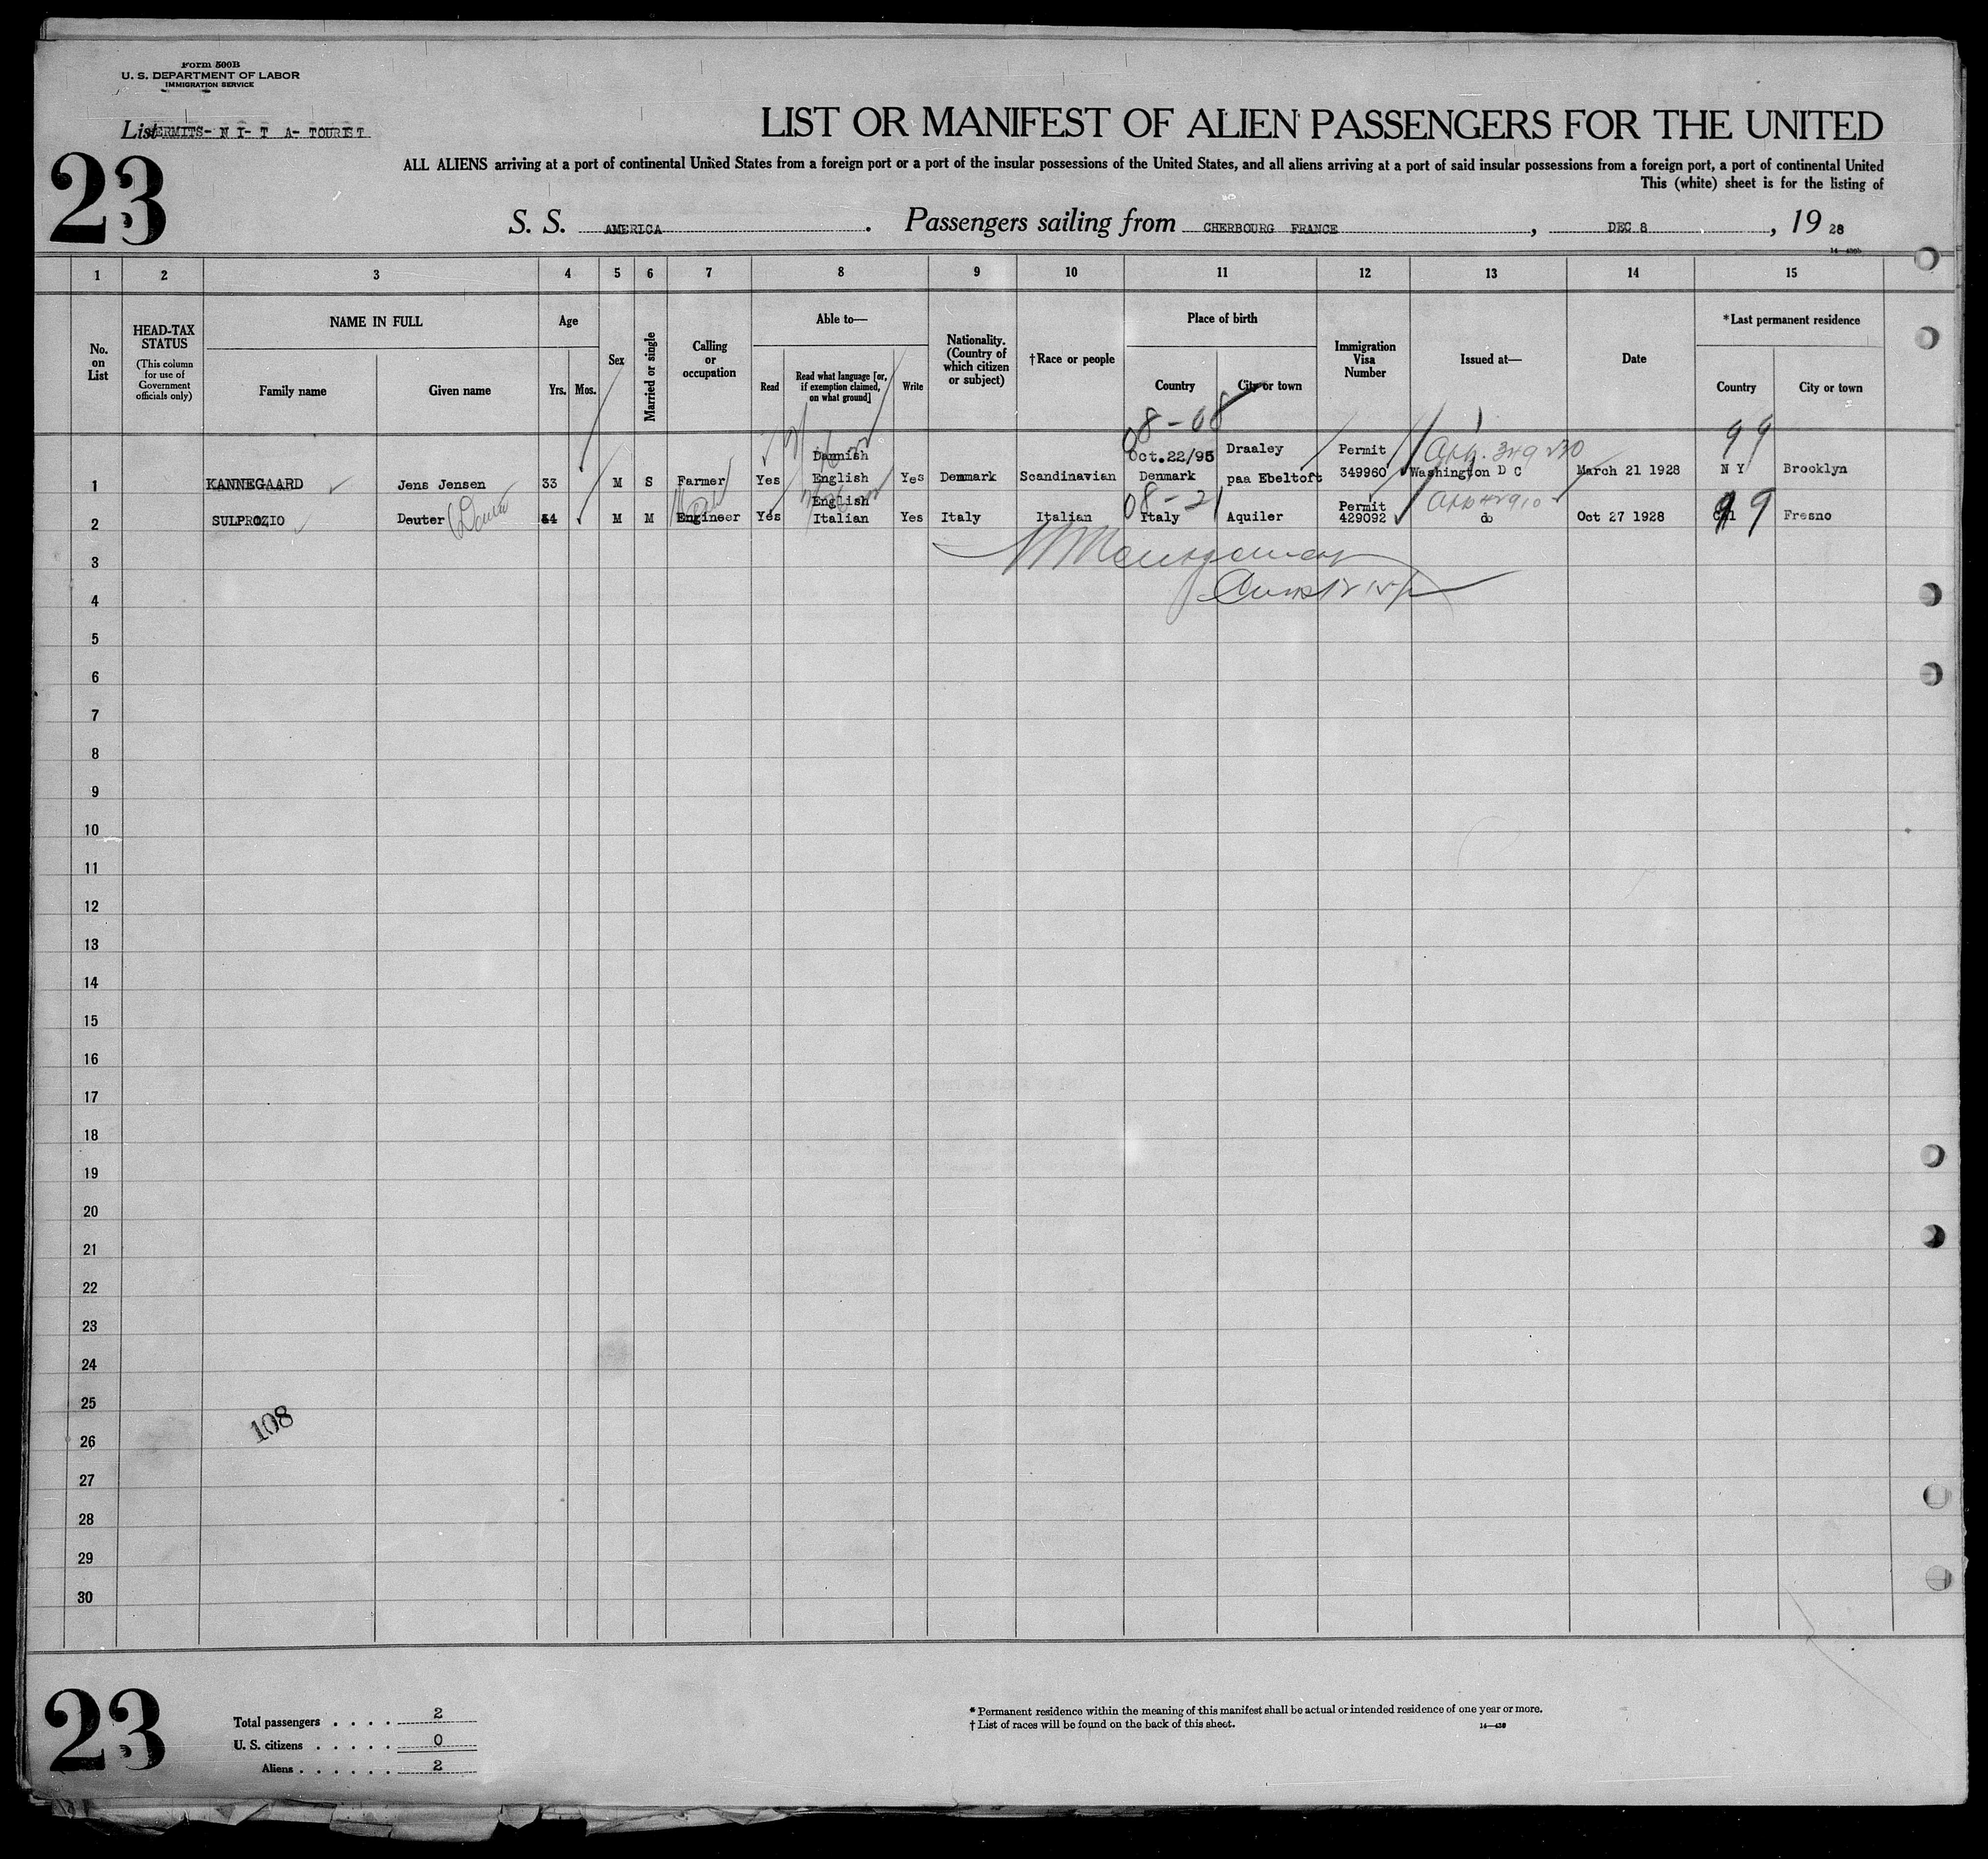 Form 500B
U. S. DEPARTMENT OF LABOR
IMMIGRATION SERVICE
List ERMITS- N I- T A- TOURIST
LIST OR MANIFEST OF ALIEN PASSENGERS FOR THE UNITED
ALL ALIENS arriving at a port of continental United States from a foreign port or a port of the insular possessions of the United States, and all aliens arriving at a port of said insular possessions from a foreign port, a port of continental United
This (white) sheet is for the listing of
23
S. S. AMERICA . Passengers sailing from CHERBOURG FRANCE , DEC 8 , 19 28
1 2 3 4 5 6 7 8 9 10 11 12 13 14 15
No. on List
HEAD-TAX STATUS
(This column for use of Government officials only)
NAME IN FULL
Family name Given name
Age
Yrs. Mos.
Sex
Married or single
Calling or occupation
Able to—
Read
Read what language [or, if exemption claimed, on what ground]
Write
Nationality. (Country of which citizen or subject)
†Race or people
Place of birth
Country City or town
Immigration Visa Number
Issued at—
Date
*Last permanent residence
Country City or town
08-08 99
Dannish Oct.22/95 Draaley Permit
1 KANNEGAARD Jens Jensen 33 M S Farmer Yes English Yes Denmark Scandinavian Denmark paa Ebeltoft 349960 Washington D C March 21 1928 N Y Brooklyn
English 08-21 Permit 99
2 SULPROZIO Deuter 54 M M Engineer Yes Italian Yes Italy Italian Italy Aquiler 429092 do Oct 27 1928 Cal Fresno
3
4
5
6
7
8
9
10
11
12
13
14
15
16
17
18
19
20
21
22
23
24
25
108
26
27
28
29
30
23
Total passengers . . . . 2
U. S. citizens . . . . . 0
Aliens . . . . . . 2
* Permanent residence within the meaning of this manifest shall be actual or intended residence of one year or more.
† List of races will be found on the back of this sheet.
14—430